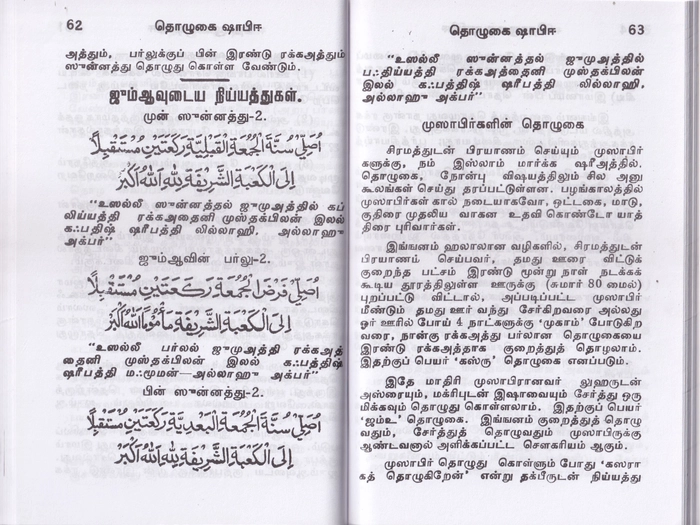 62 தொழுகை ஷாபிஈ
அத்தும், பர்லுக்குப் பின் இரண்டு ரக்கஅத்தும்
ஸுன்னத்து தொழுது கொள்ள வேண்டும்.
ஜும்ஆவுடைய நிய்யத்துகள்.
முன் ஸுன்னத்து-2.
اُصَلِّيْ سُنَّةَ الْجُمُعَةِ الْقَبْلِيَّةِ رَكْعَتَيْنِ مُسْتَقْبِلًا
اِلَى الْكَعْبَةِ الشَّرِيْفَةِ لِلّٰهِ اَللّٰهُ اَكْبَرُ
"உஸல்லீ ஸுன்னத்தல் ஜுமுஅத்தில் கப்
லிய்யத்தி ரக்கஅதைனி முஸ்தக்பிலன் இலல்
கஃபதிஷ் ஷரீபத்தி லில்லாஹி. அல்லாஹு
அக்பர்"
ஜும்ஆவின் பர்லு-2.
اُصَلِّيْ فَرْضَ الْجُمُعَةِ رَكْعَتَيْنِ مُسْتَقْبِلًا
اِلَى الْكَعْبَةِ الشَّرِيْفَةِ مَأْمُوْمًا اَللّٰهُ اَكْبَرُ
"உஸல்லீ பர்லல் ஜுமுஅத்தி ரக்கஅத்
தைனி முஸ்தக்பிலன் இலல் கஃபத்திஷ்
ஷரீபத்தி மஃமூமன்—அல்லாஹு அக்பர்"
பின் ஸுன்னத்து-2.
اُصَلِّيْ سُنَّةَ الْجُمُعَةِ الْبَعْدِيَّةِ رَكْعَتَيْنِ مُسْتَقْبِلًا
اِلَى الْكَعْبَةِ الشَّرِيْفَةِ لِلّٰهِ اَللّٰهُ اَكْبَرُ
தொழுகை ஷாபிஈ 63
"உஸல்லீ ஸுன்னத்தல் ஜுமுஅத்தில்
பஃதிய்யத்தி ரக்கஅத்தைனி முஸ்தக்பிலன்
இலல் கஃபத்திஷ் ஷரீபத்தி லில்லாஹி,
அல்லாஹு அக்பர்"
முஸாபிர்களின் தொழுகை
சிரமத்துடன் பிரயாணம் செய்யும் முஸாபிர்
களுக்கு, நம் இஸ்லாம் மார்க்க ஷரீஅத்தில்.
தொழுகை, நோன்பு விஷயத்திலும் சில அனு
கூலங்கள் செய்து தரப்பட்டுள்ளன. பழங்காலத்தில்
முஸாபிர்கள் கால் நடையாகவோ, ஒட்டகை, மாடு,
குதிரை முதலிய வாகன உதவி கொண்டோ யாத்
திரை புரிவார்கள்.
இங்ஙனம் ஹலாலான வழிகளில், சிரமத்துடன்
பிரயாணம் செய்பவர், தமது ஊரை விட்டுக்
குறைந்த பட்சம் இரண்டு மூன்று நாள் நடக்கக்
கூடிய தூரத்திலுள்ள ஊருக்கு (சுமார் 80 மைல்)
புறப்பட்டு விட்டால், அப்படிப்பட்ட முஸாபிர்
மீண்டும் தமது ஊர் வந்து சேர்கிறவரை அல்லது
ஓர் ஊரில் போய் 4 நாட்களுக்கு 'முகாம்' போடுகிற
வரை, நான்கு ரக்கஅத்து பர்லான தொழுகையை
இரண்டு ரக்கஅத்தாக குறைத்துத் தொழலாம்.
இதற்குப் பெயர் 'கஸ்ரு' தொழுகை எனப்படும்.
இதே மாதிரி முஸாபிரானவர் லுஹருடன்
அஸ்ரையும், மக்ரிபுடன் இஷாவையும் சேர்த்து ஒரு
மிக்கவும் தொழுது கொள்ளலாம். இதற்குப் பெயர்
'ஜம்உ' தொழுகை. இங்ஙனம் குறைத்துத் தொழு
வதும், சேர்த்துத் தொழுவதும் முஸாபிருக்கு
ஆண்டவனால் அளிக்கப்பட்ட சௌகரியம் ஆகும்.
முஸாபிர் தொழுது கொள்ளும் போது 'கஸரா
கத் தொழுகிறேன்' என்று தக்பீருடன் நிய்யத்து